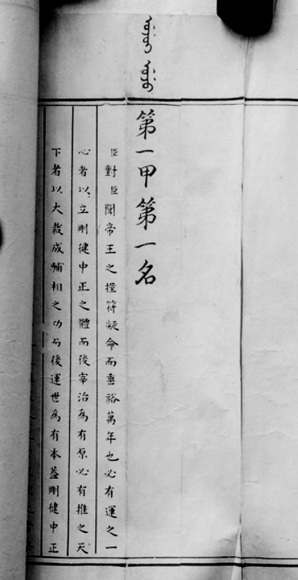 第一甲第一名
臣對臣聞帝王之握符凝命而垂裕萬年也必有運之一
心者以立剛健中正之體而後宰治為有原必有推之天
下者以大裁成輔相之功而後運世為有本蓋剛健中正